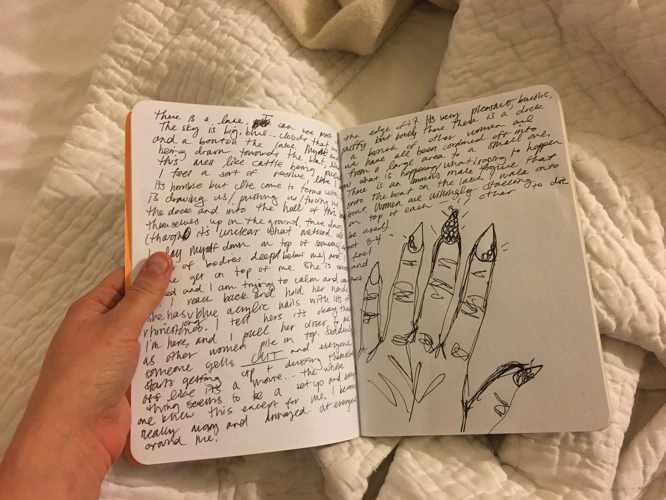 there is a lake, I can see most
The sky is big, blue... clouds that
and a boat on the lake. Myself
being drawn towards the boat, like
this area like cattle being
I feel a sort of passive, like I
Its horrible but Ive come to terms with
is drawing us/pulling us/forcing us
the dock and into the hull of this
themselves up on the ground, three deep
(though it's unclear what
I lay myself down on top of someone
of bodies deep below me) and
one get on top of me. She is
and I am trying to calm and
I reach back and hold her hand
She has blue acrylic nails with lots of
rhinestones. I tell hers its okay that
I'm here, and I pull her closer to me
as other women pile on top. Suddenly
someone yells CUT and everyone
starts getting up + dusting themselves
its like its a movie... the whole
thing seems to be a set up and every
one knew this except for me, I become
really angry and annoyed at everyone
around me.
the edge of it. Its very pleasant, bucolic,
pretty but lonely there. There is a dock
a bunch of other women and
we have all been cordoned off into
from a large area to a small one,
what is happening, what is going to happen
There is an ominous male figure that
onto the boat on the lake, I walk onto
boat. Women are willingly stacking
on top of each other to die
be used).
about 3-4
feel
and